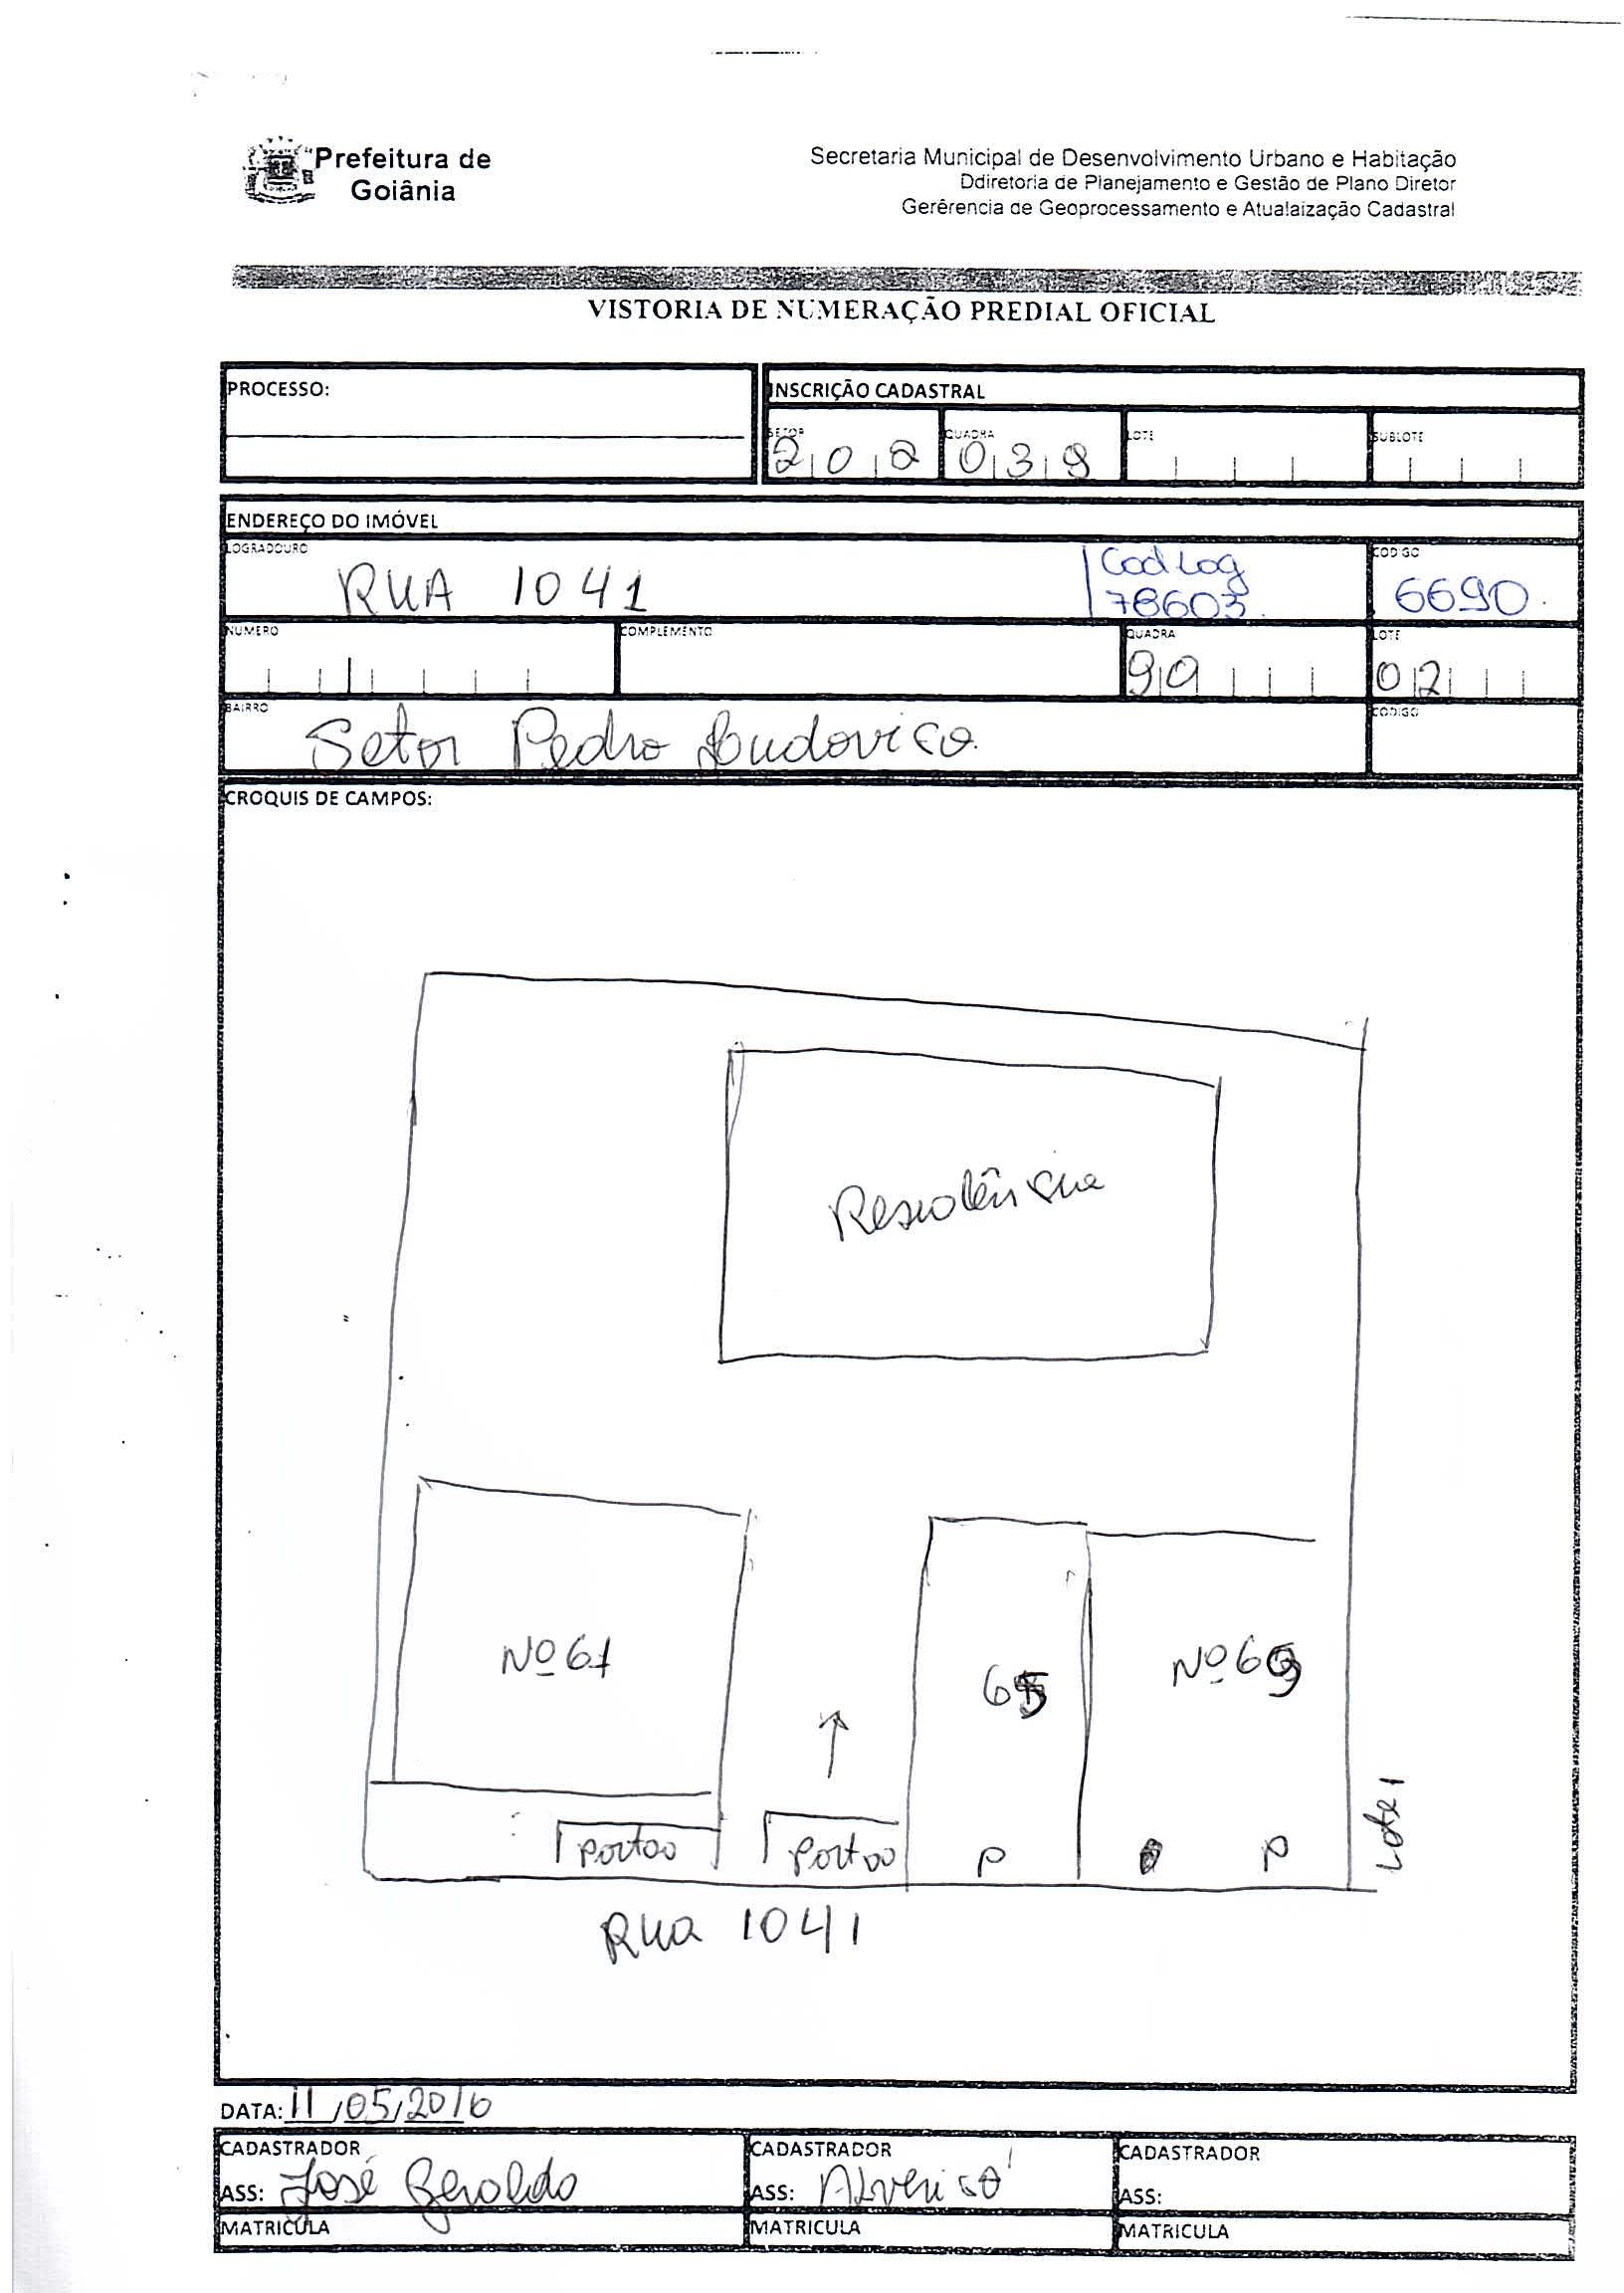 Prefeitura de
Goiânia
Secretaria Municipal de Desenvolvimento Urbano e Habitação
Ddiretoria de Planejamento e Gestão de Plano Diretor
Gerêrencia de Geoprocessamento e Atualaização Cadastral
VISTORIA DE NUMERAÇÃO PREDIAL OFICIAL
PROCESSO:
INSCRIÇÃO CADASTRAL
SETOR QUADRA LOTE SUBLOTE
202 039
ENDEREÇO DO IMÓVEL
LOGRADOURO CODIGO
RUA 1041 Cod Log 6690.
78603.
NUMERO COMPLEMENTO QUADRA LOTE
90 02
BAIRRO CODIGO
Setor Pedro Ludovico.
CROQUIS DE CAMPOS:
Residência
Nº 61
65
Nº 69
Portão Portão P P
Lote 1
Rua 1041
DATA: 11/05/2016
CADASTRADOR CADASTRADOR CADASTRADOR
ASS: José Geraldo ASS: ASS:
MATRICULA MATRICULA MATRICULA